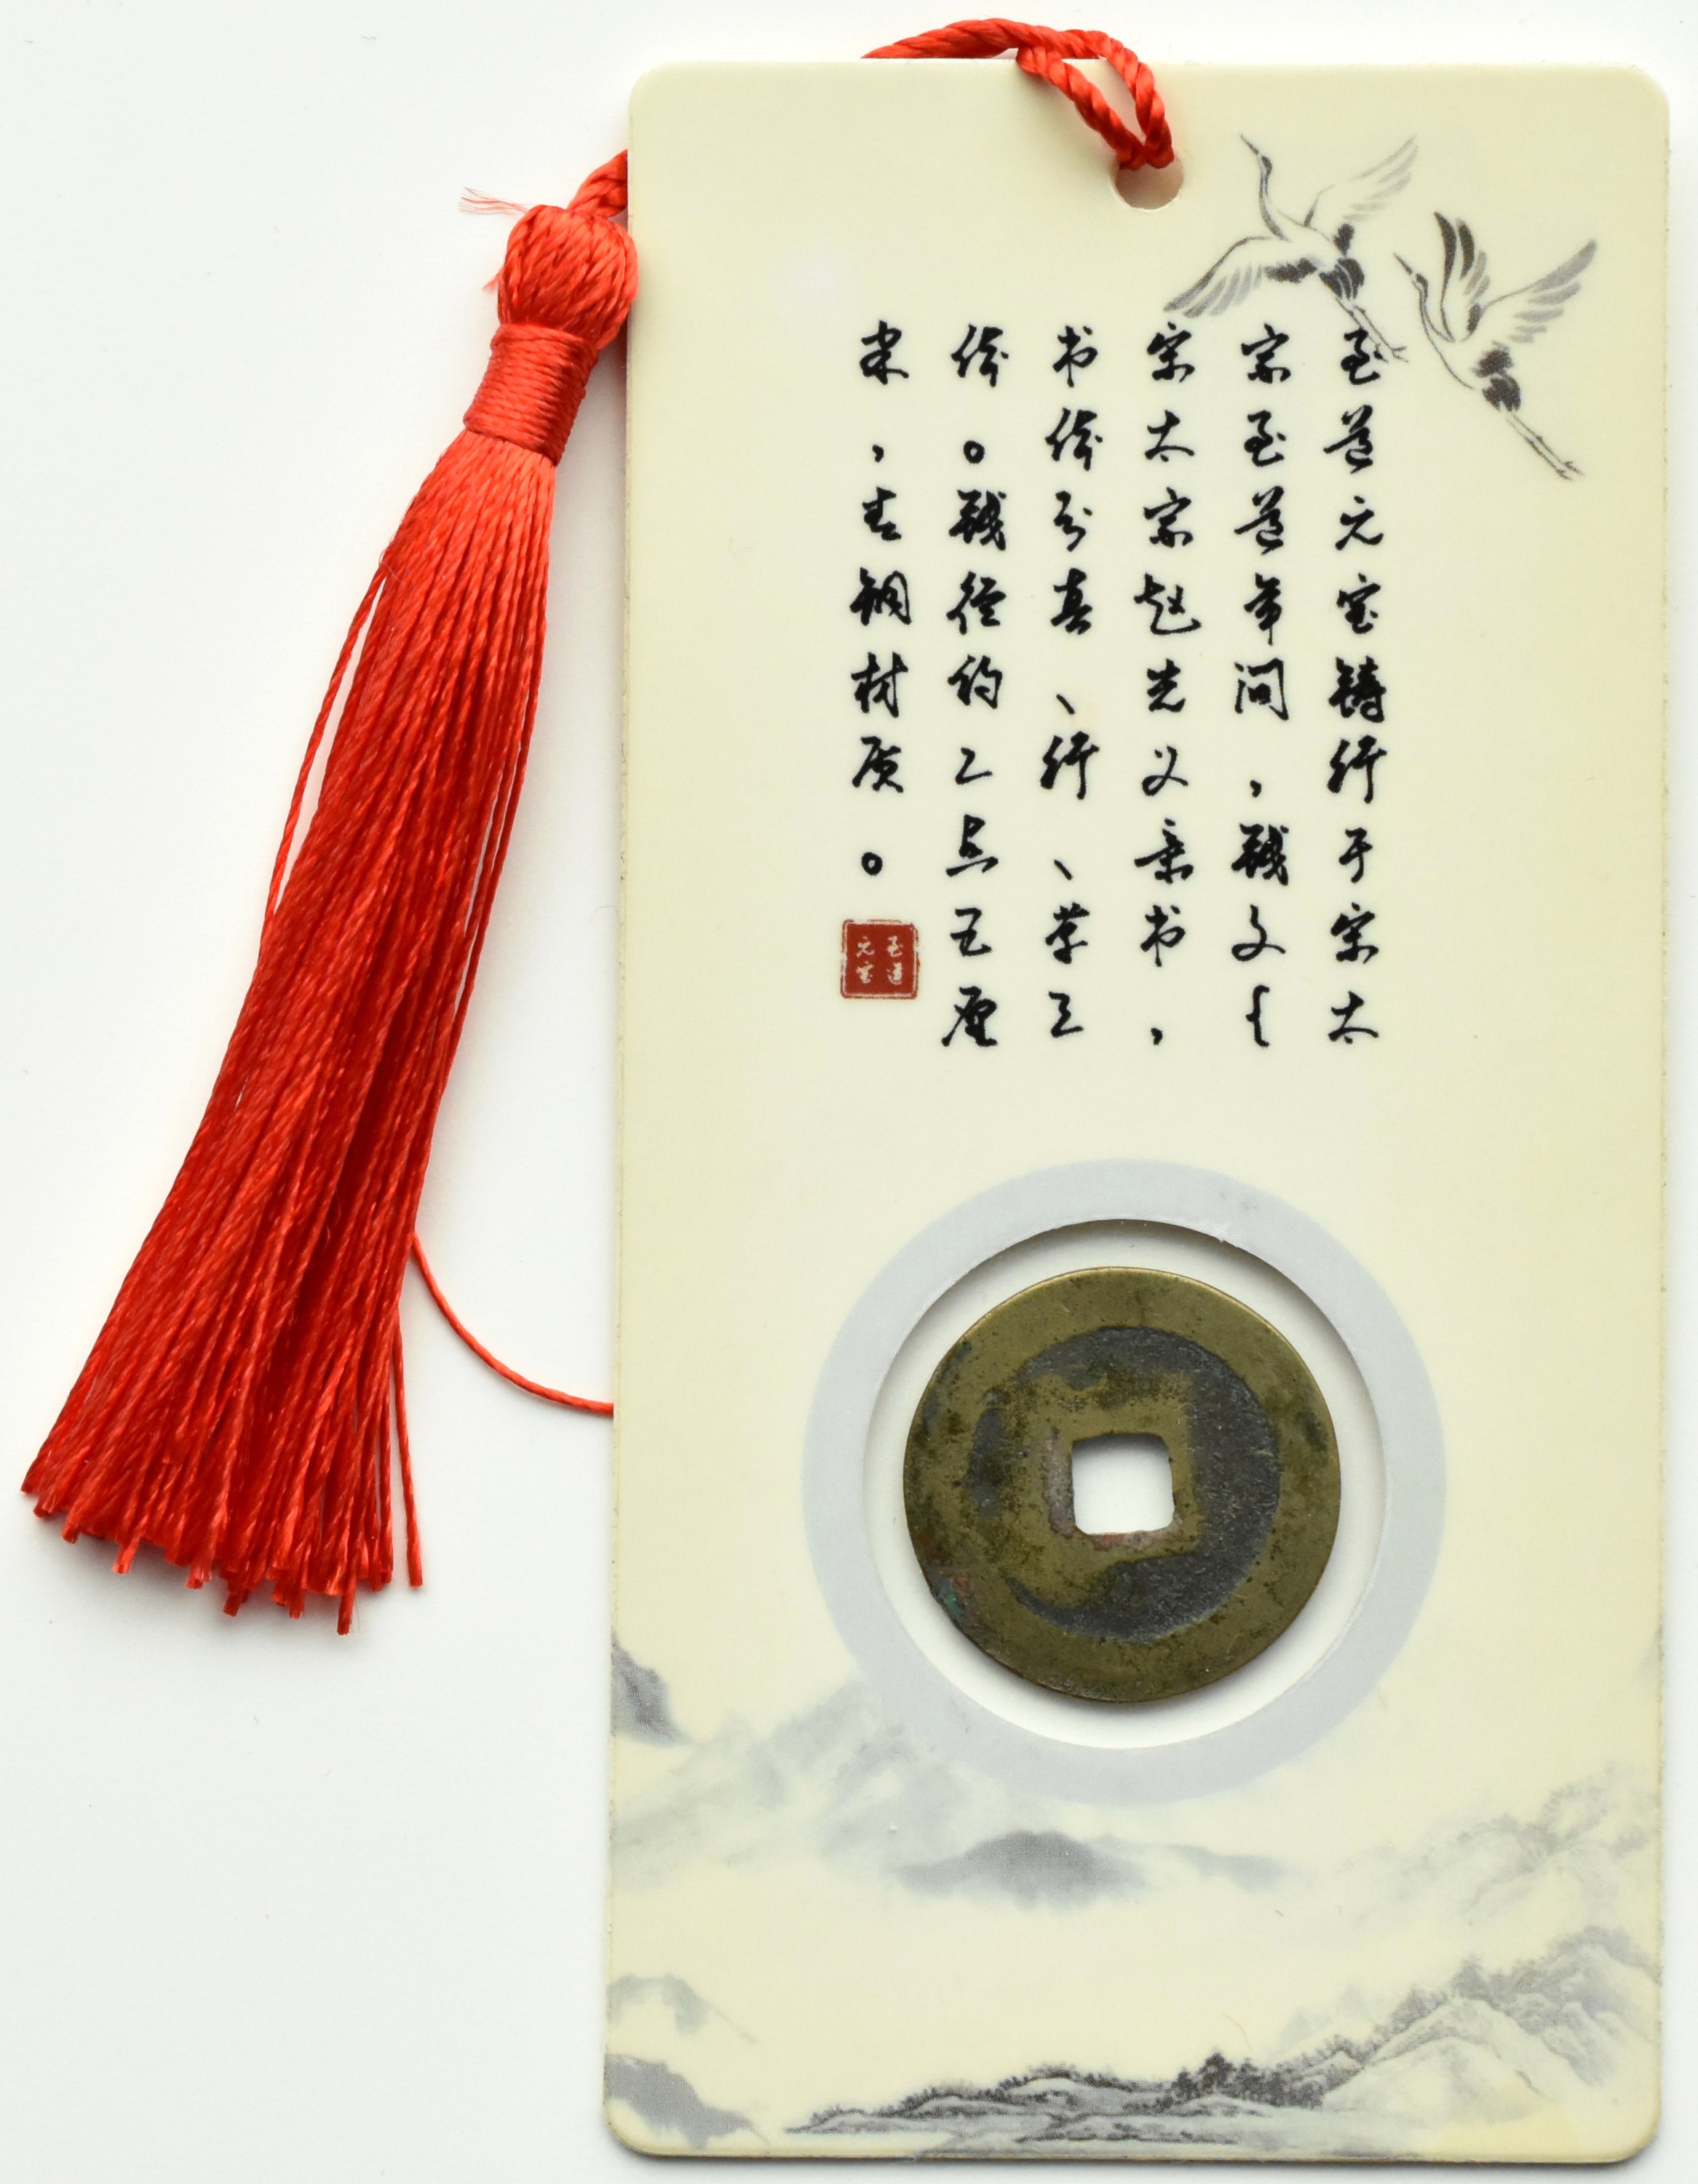 至道元宝铸行于宋太
宗至道年间，钱文是
宋太宗赵光义亲书，
书体分真、行、草三
体。钱径约二点五厘
米，青铜材质。
至道
元宝